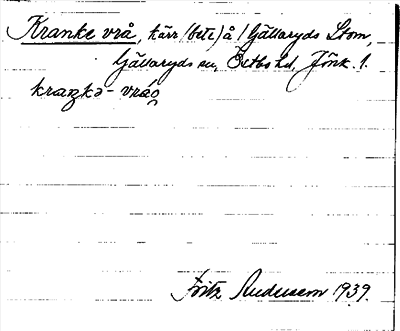 Kranke vrå, kärr (bete) å 1 Gällaryds Stom,
Gällaryds sn, Östbo hd, Jönk. l.
kraŋkə- vrå
Fritz Anderson 1939.